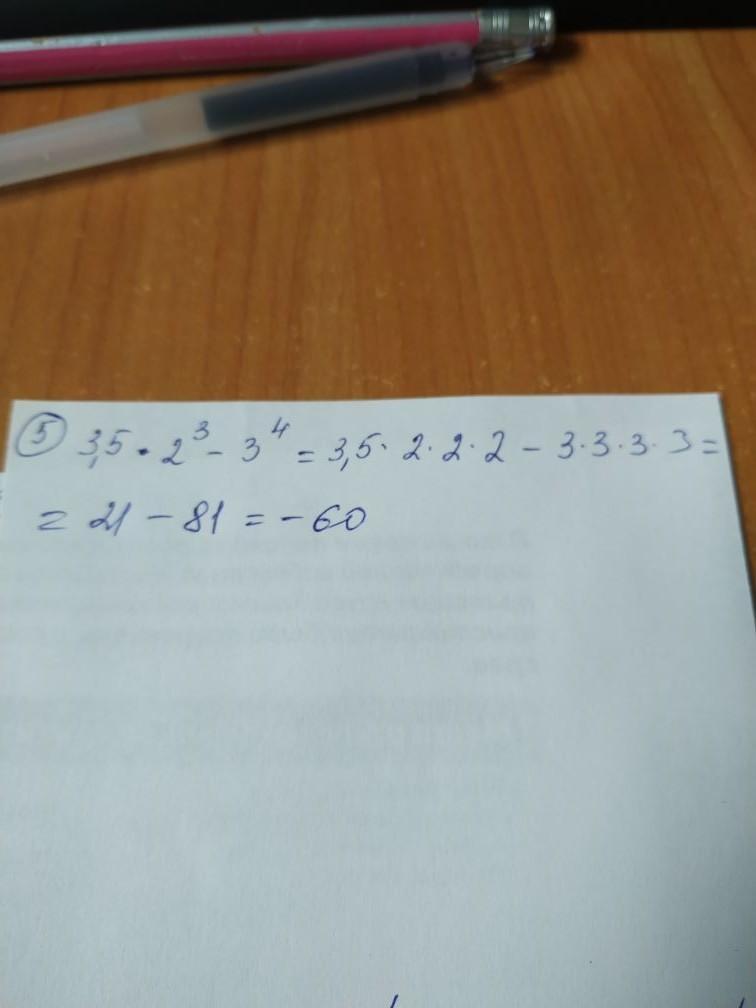 5 3,5 • 2³ - 3⁴ = 3,5 · 2 · 2 · 2 - 3 · 3 · 3 · 3 =
= 21 - 81 = - 60